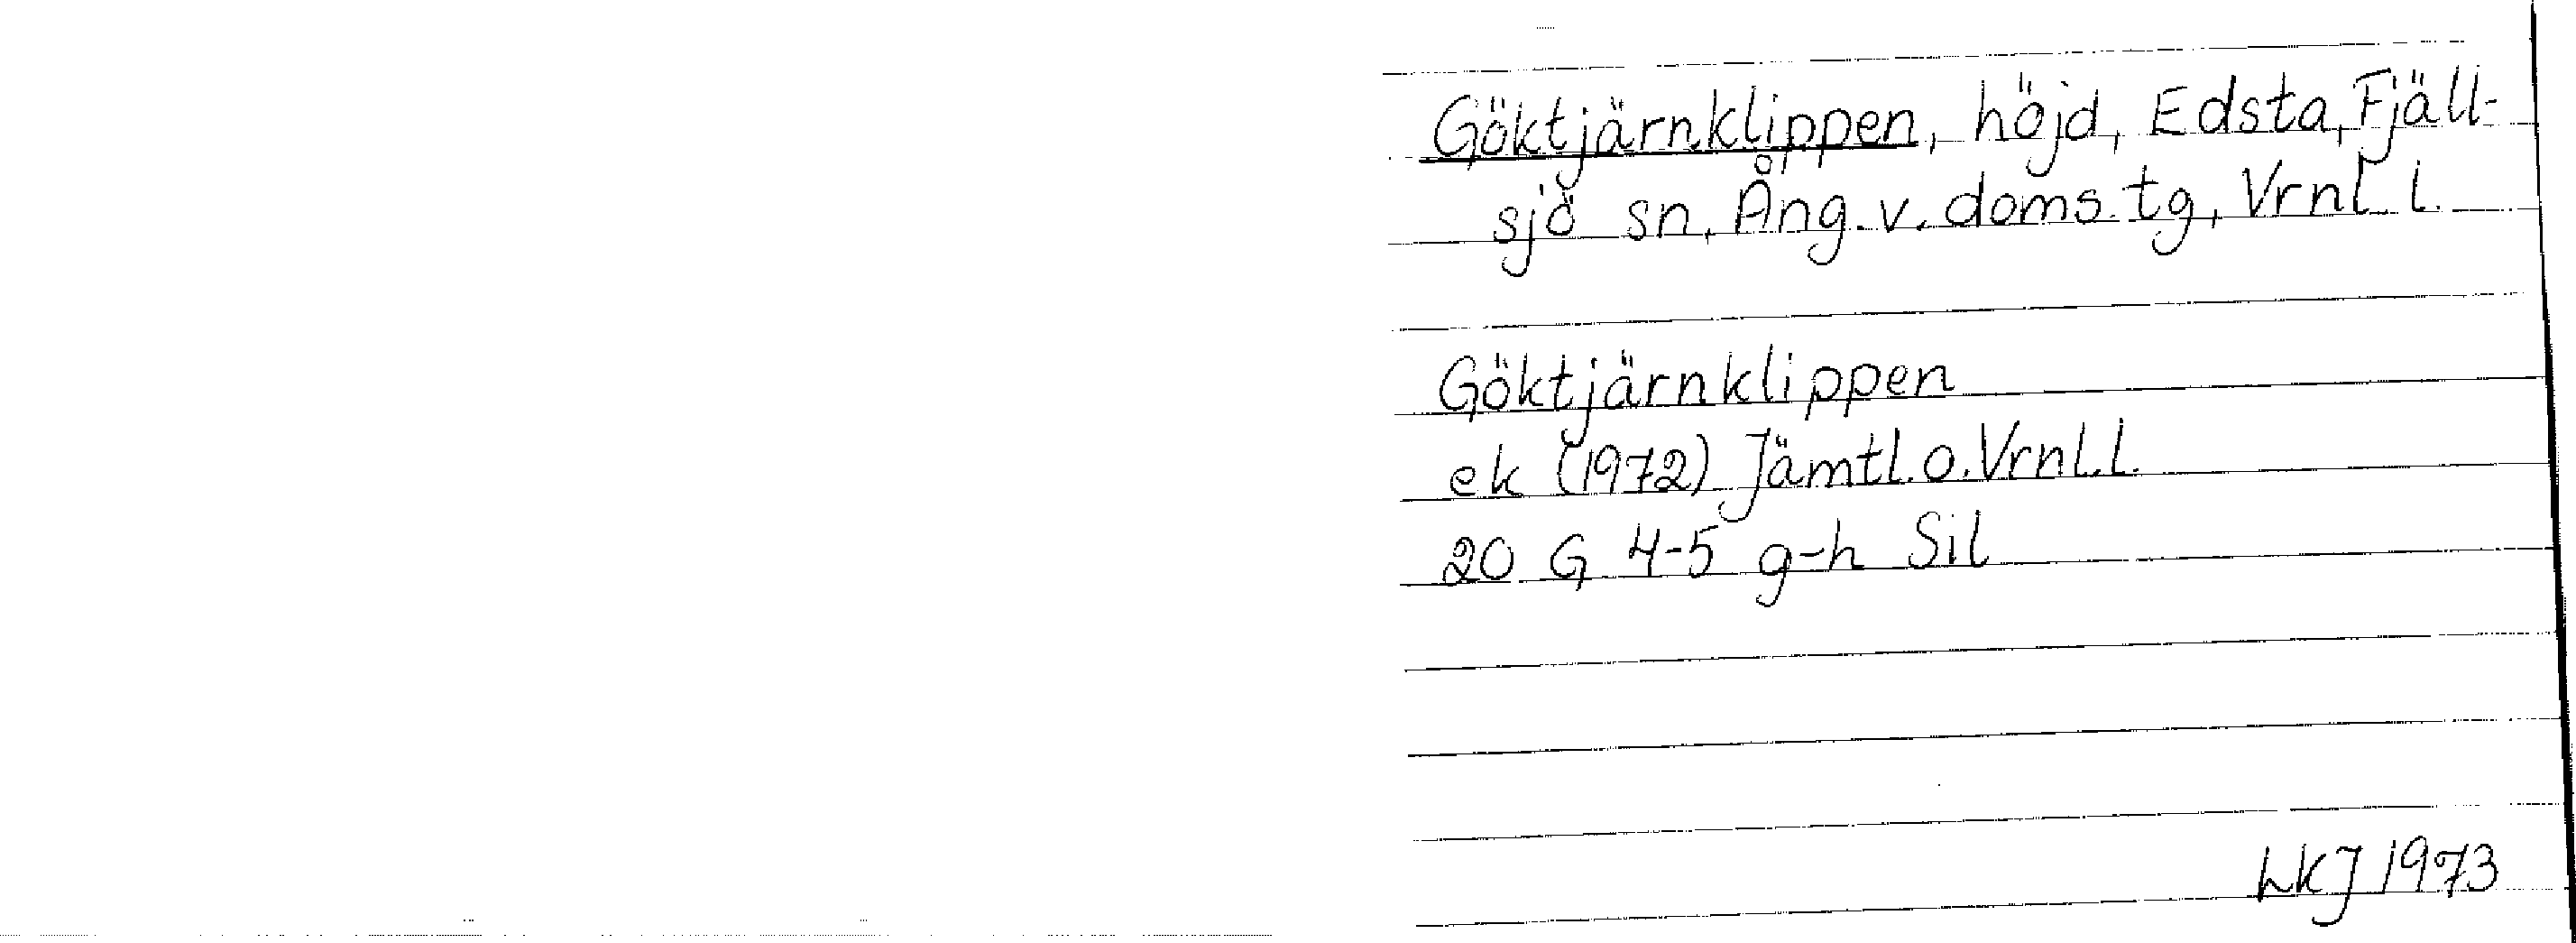 Göktjärnklippen, höjd, Edsta, Fjäll-
sjö sn, Ång. v. doms. tg, Vrnl. l.
Göktjärnklippen
ek (1972) Jämtl. o. Vrnl. l.
20 G 4-5 g-h Sil
LKJ 1973